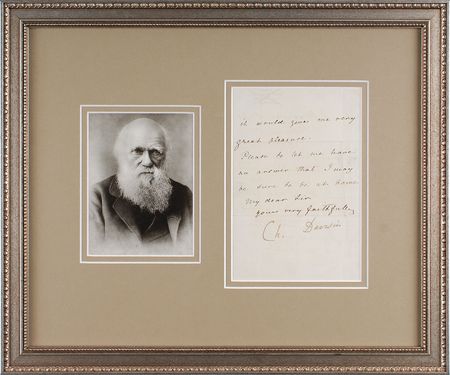 it would give me very
great pleasure.
Please to let me have
an answer that I may
be sure to be at home
My dear Sir
yours very faithfully
Ch. Darwin